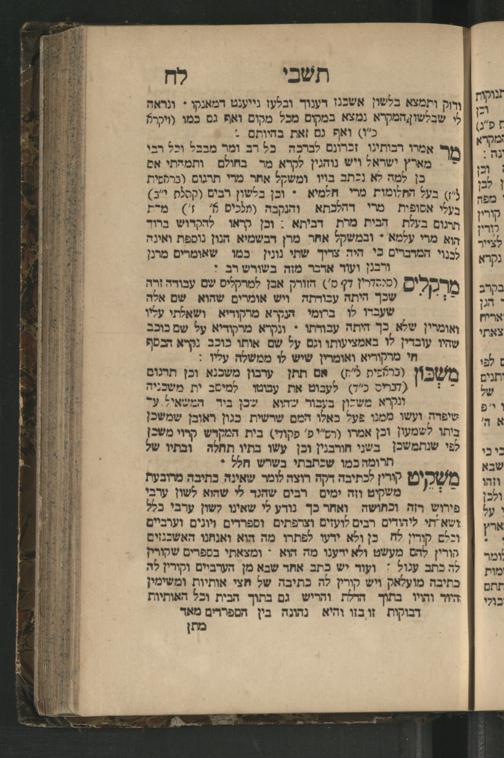 תשבי לח
ודוק ותמצא בלשון אשכנז דענוך ובלעז נייענט דמאנקו · ונראה
לי שבלשון המקרא נמצא במקום מכל מקום ואף גם כמו (ויקרא
כ״ו) ואף גם זאת בהיותם :
מר אמרו רבותינו זכרונם לברכה כל רב ומר מבבל וכל רבי
מארץ ישראל ויש נוהגין לקרא מר בחולם ותמהתי אם
כן למה לא נכתב בויו ומשקל אחר מרי תרגום (בראשית
ל״ז) בעל החלומות מרי חלמיא · וכן בלשון רבים (קהלת י״ב)
בעלי אסופות מרי דהלכתא והנקבה (מלכים א׳ ז׳) מרת
תרגום בעלת הבית מרת דביתא : וכן קראו להקדוש ברוך
הוא מרי עלמא · ובמשקל אחר מרן דבשמיא הנון נוספת ואינה
לכנוי המדברים כי היה צריך שתי נונין כמו שאומרים מרנן
ורבנן ועוד אדבר מזה בשורש רב :
מרקלים (סנהדרין דף ס׳) הזורק אבן למרקלים שם עבודה זרה
שכך היתה עבודתה ויש אומרים שהוא שם אלה
שעבדו לו ברומי הנקרא מרקוריא ושאלתי עליו
ואומרין שלא כך היתה עבודתו · ונקרא מרקוריא על שם כוכב
שהיו עובדין לו באמצעותו וגם על שם אותו כוכב נקרא הכסף
חי מרקוריא ואומרין שיש לו ממשלה עליו :
משכון (בראשית ל״ח) אם תתן ערבון משכנא וכן תרגום
(דברים כ״ד) לעבוט את עבוטו למיסב ית משכניה
ונקרא משכון בעבור שהוא שכן ביד המשאיל עד
שיפדה ועשו ממנו פעל כאלו המם שרשית כגון ראובן שמשכן
ביתו לשמעון וכן אמרו (רש״י פ׳ פקודי) בית המקדש קרוי משכן
לפי שנתמשכן בשני חורבנין וכן עשו בתיו תחלה ובתיו של
תרומה כמו שכתבתי בשרש חלל ·
משקיט קורין לכתיבה דקה רוצה לומר שאינה כתיבה מרובעת
משקיט וזה ימים רבים שהגד לי שהוא לשון ערבי
פירוש רזה וכחושה ואחר כך נודע לי שאינו לשון ערבי כלל
ושאלתי ליהודים רבים לועזים וצרפתים וספרדים ויונים וערביים
וכלם קורין לה כן ולא ידעו לפתרו מה הוא ואנחנו האשכנזים
קורין להם מעשט ולא ידענו מה הוא · ומצאתי בספרים שקורין
לה כתב עגול : ועוד יש כתב אחר שבא מן הערביים וקורין לה
כתיבה מועלאק ויש קורין לה כתיבה של חצי אותיות ומשימין
היוד והויו בתוך הדלת והריש גם בתוך הבית וכל האותיות
דבוקות זו בזו והיא נהוגה בין הספרדים מאד
מתן